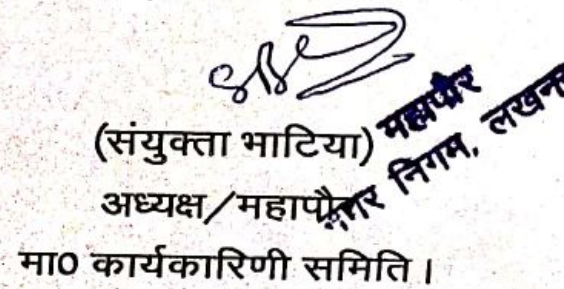 (संयुक्ता भाटिया)
अध्यक्ष/महापौर
मा0 कार्यकारिणी समिति।
महापौर
नगर निगम, लखनऊ